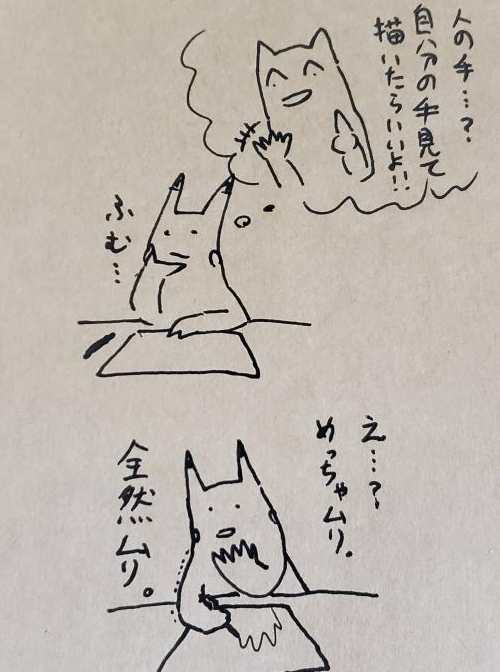 人の手…?
自分の手見て
描いたらいいよ!!
ふむ…
え…?
めっちゃムリ。
全然ムリ。